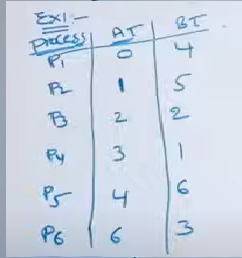 EX1:-
PROCESS AT BT
P1 0 4
P2 1 5
P3 2 2
P4 3 1
P5 4 6
P6 6 3